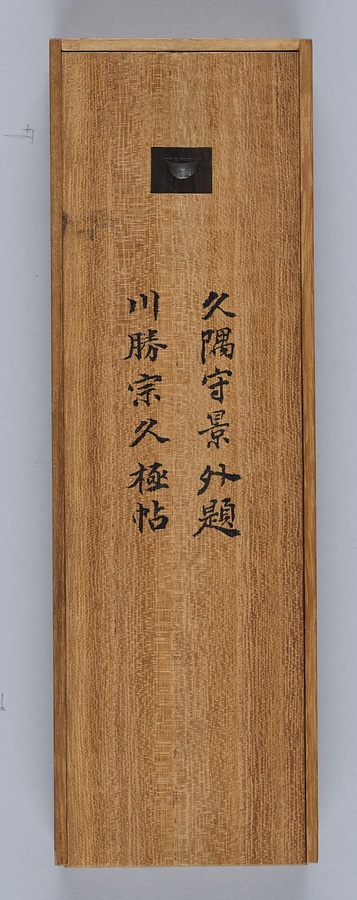 久隅守景外題
川勝宗久極帖